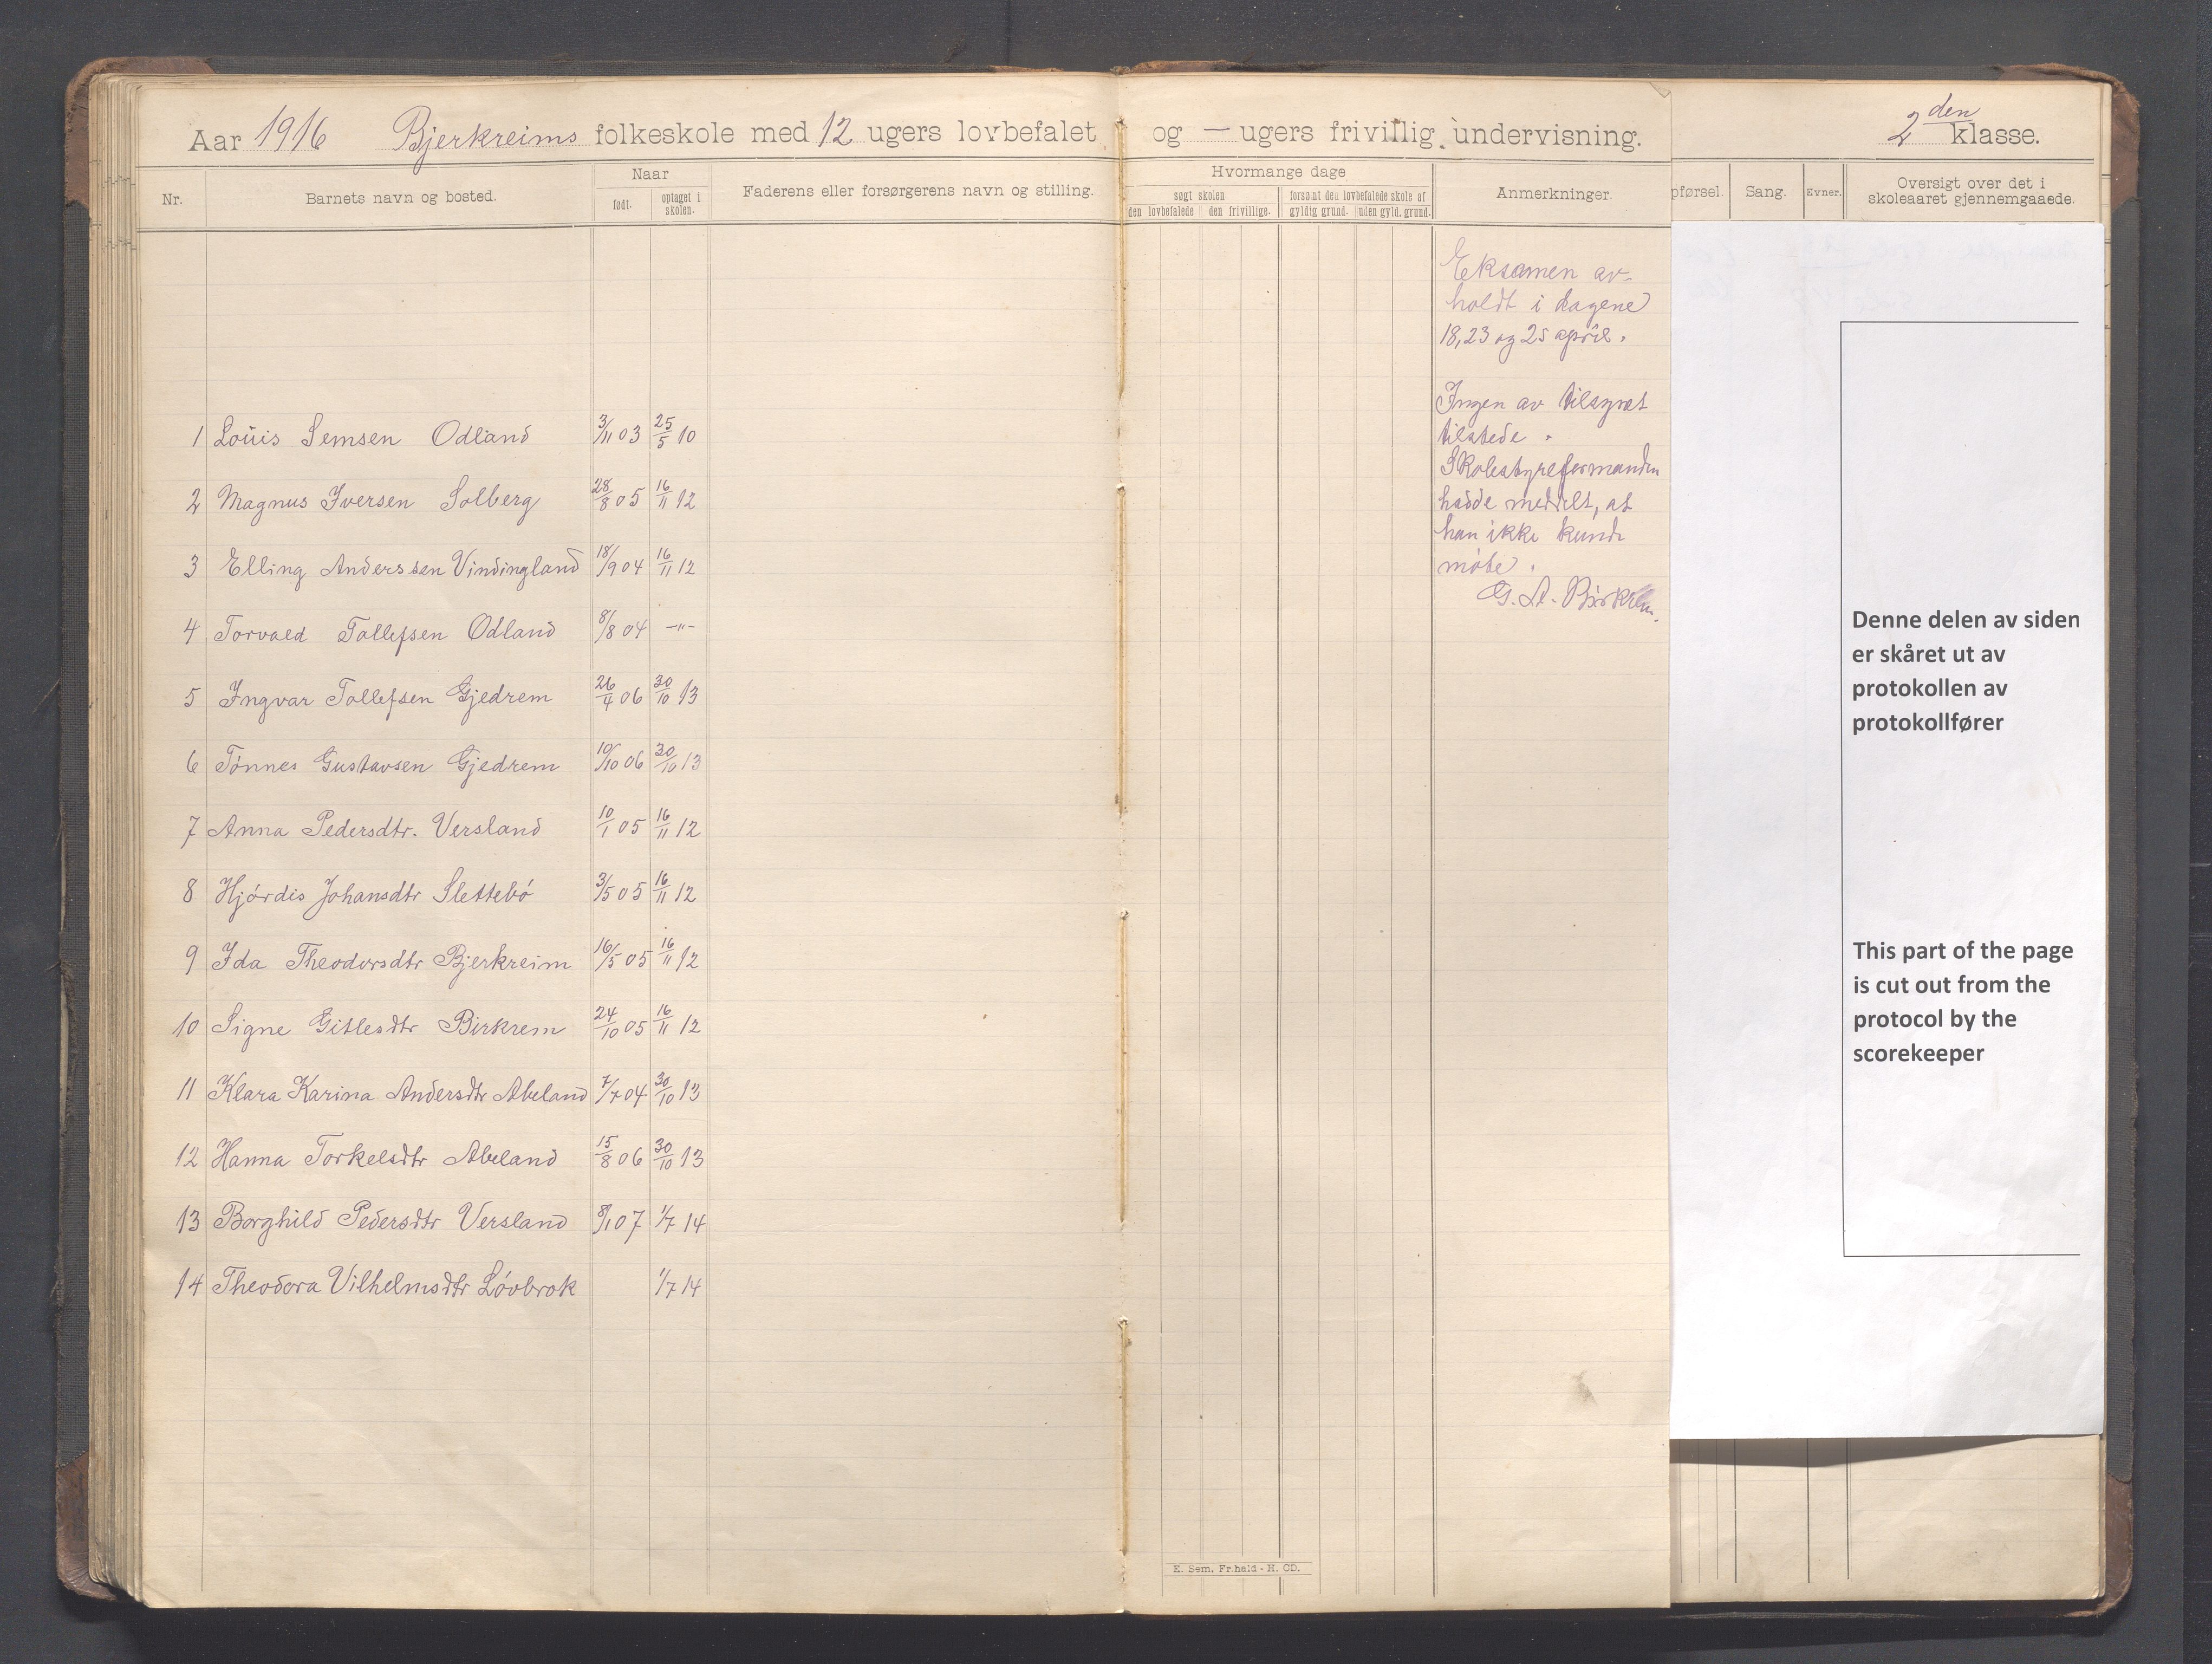 Aar 1916 Bjerkreims folkeskole med 12 ugers lovbefalet og — ugers frivillig undervisning.
2den klasse.
Nr.
Barnets navn og bosted.
Naar
født.
optaget i skolen.
Faderens eller forsørgerens navn og stilling.
Hvormange dage
søgt skolen
den lovbefalede
den frivillige.
forsømt den lovbefalede skole af
gyldig grund.
uden gyld. grund.
Anmerkninger.
pførsel.
Sang.
Evner.
Oversigt over det i
skoleaaret gjennemgaaede.
Eksamen av-
holdt i dagene
18, 23 og 25 april.
Ingen av tilsynet
tilstede.
Skolestyreformanden
hadde meddelt, at
han ikke kunde
møte.
G. A. Birkrem.
1 Louis Semsen Odland 3/11 03 25/5 10
2 Magnus Iversen Solberg 28/8 05 16/11 12
3 Elling Anderssen Vindingland 18/9 04 16/11 12
4 Torvald Tollefsen Odland 8/8 04 -"-
5 Ingvar Tollefsen Gjedrem 26/4 06 30/10 13
6 Tønnes Gustavsen Gjedrem 10/10 06 30/10 13
7 Anna Pedersdtr. Versland 10/1 05 16/11 12
8 Hjørdis Johansdtr Slettebø 3/5 05 16/11 12
9 Ida Theodorsdtr Bjerkreim 16/5 05 16/11 12
10 Signe Gitlesdtr Birkrem 24/10 05 16/11 12
11 Klara Karina Andersdtr Abeland 7/7 04 30/10 13
12 Hanna Torkelsdtr Abeland 15/8 06 30/10 13
13 Borghild Pedersdtr Versland 8/1 07 1/7 14
14 Theodora Vilhelmsdtr Løvbrok 1/7 14
E. Sem. Fr.hald - H. CD.
Denne delen av siden
er skåret ut av
protokollen av
protokollfører
This part of the page
is cut out from the
protocol by the
scorekeeper